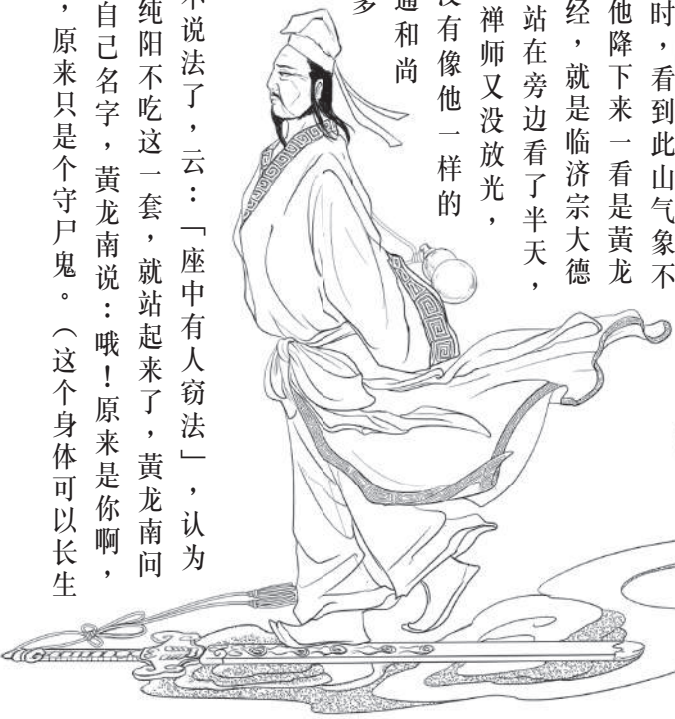 时，看到此山气象不
他降下来一看是黄龙
经，就是临济宗大德
站在旁边看了半天，
禅师又没放光，
没有像他一样的
通和尚
多
不说法了，云：「座中有人窃法」，认为
纯阳不吃这一套，就站起来了，黄龙南问
自己名字，黄龙南说：哦！原来是你啊，
，原来只是个守尸鬼。（这个身体可以长生